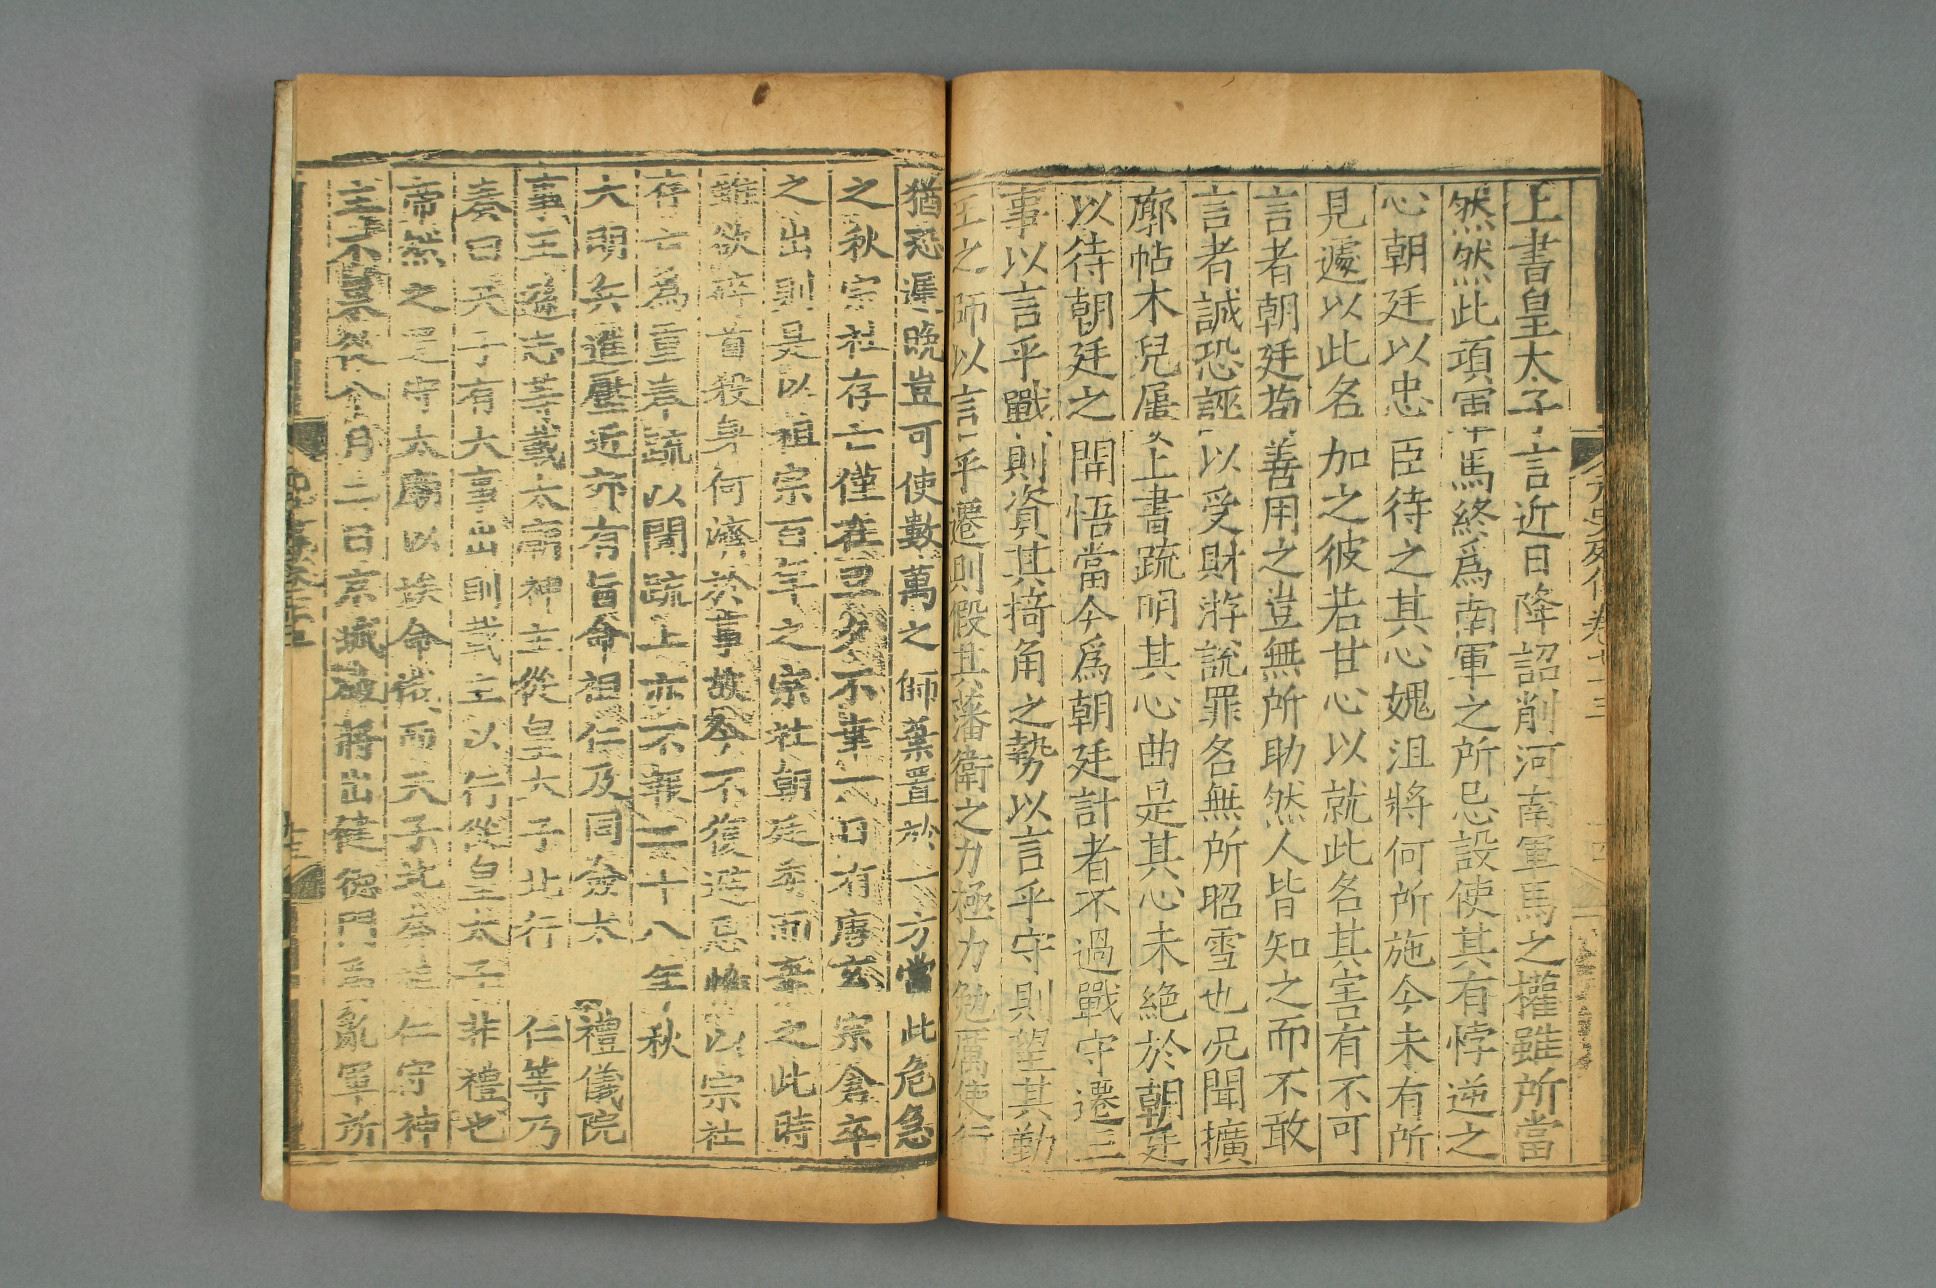 上書皇太子言近日降詔削河南軍馬之權雖所當
然然此項軍馬終爲南軍之所忌設使其有悖逆之
心朝廷以忠臣待之其心媿沮將何所施今未有所
見遽以此名加之彼若甘心以就此名其害有不可
言者朝廷苟善用之豈無所助然人皆知之而不敢
言者誠恐誣以受財游說罪名無所昭雪也况聞擴
廓帖木兒屢上書疏明其心曲是其心未絕於朝廷
以待朝廷之開悟當今爲朝廷計者不過戰守遷三
事以言乎戰則資其掎角之勢以言乎守則望其勤
王之師以言乎遷則假其藩衛之力極力勉厲使行
猶恐遲晚豈可使數萬之師棄置於一方當此危急
之秋宗社存亡僅在旦夕不幸一日有唐玄宗倉卒
之出則是以祖宗百年之宗社朝廷委而棄之此時
雖欲碎首殺身何濟於事故今不復避忌惟以宗社
存亡爲重言疏以聞疏上亦不報二十八年秋
大明兵進壓近郊有旨命祖仁及同僉太 禮儀院
事王遜志等載太廟神主從皇太子北行 仁等乃
奏曰天子有大事出則載主以行從皇太子非禮也
帝然之還守太廟以俟命俄而天子北奔祖仁守神
主不果從八月二日京城破將出健德門爲亂軍所
元史列傳卷七十三